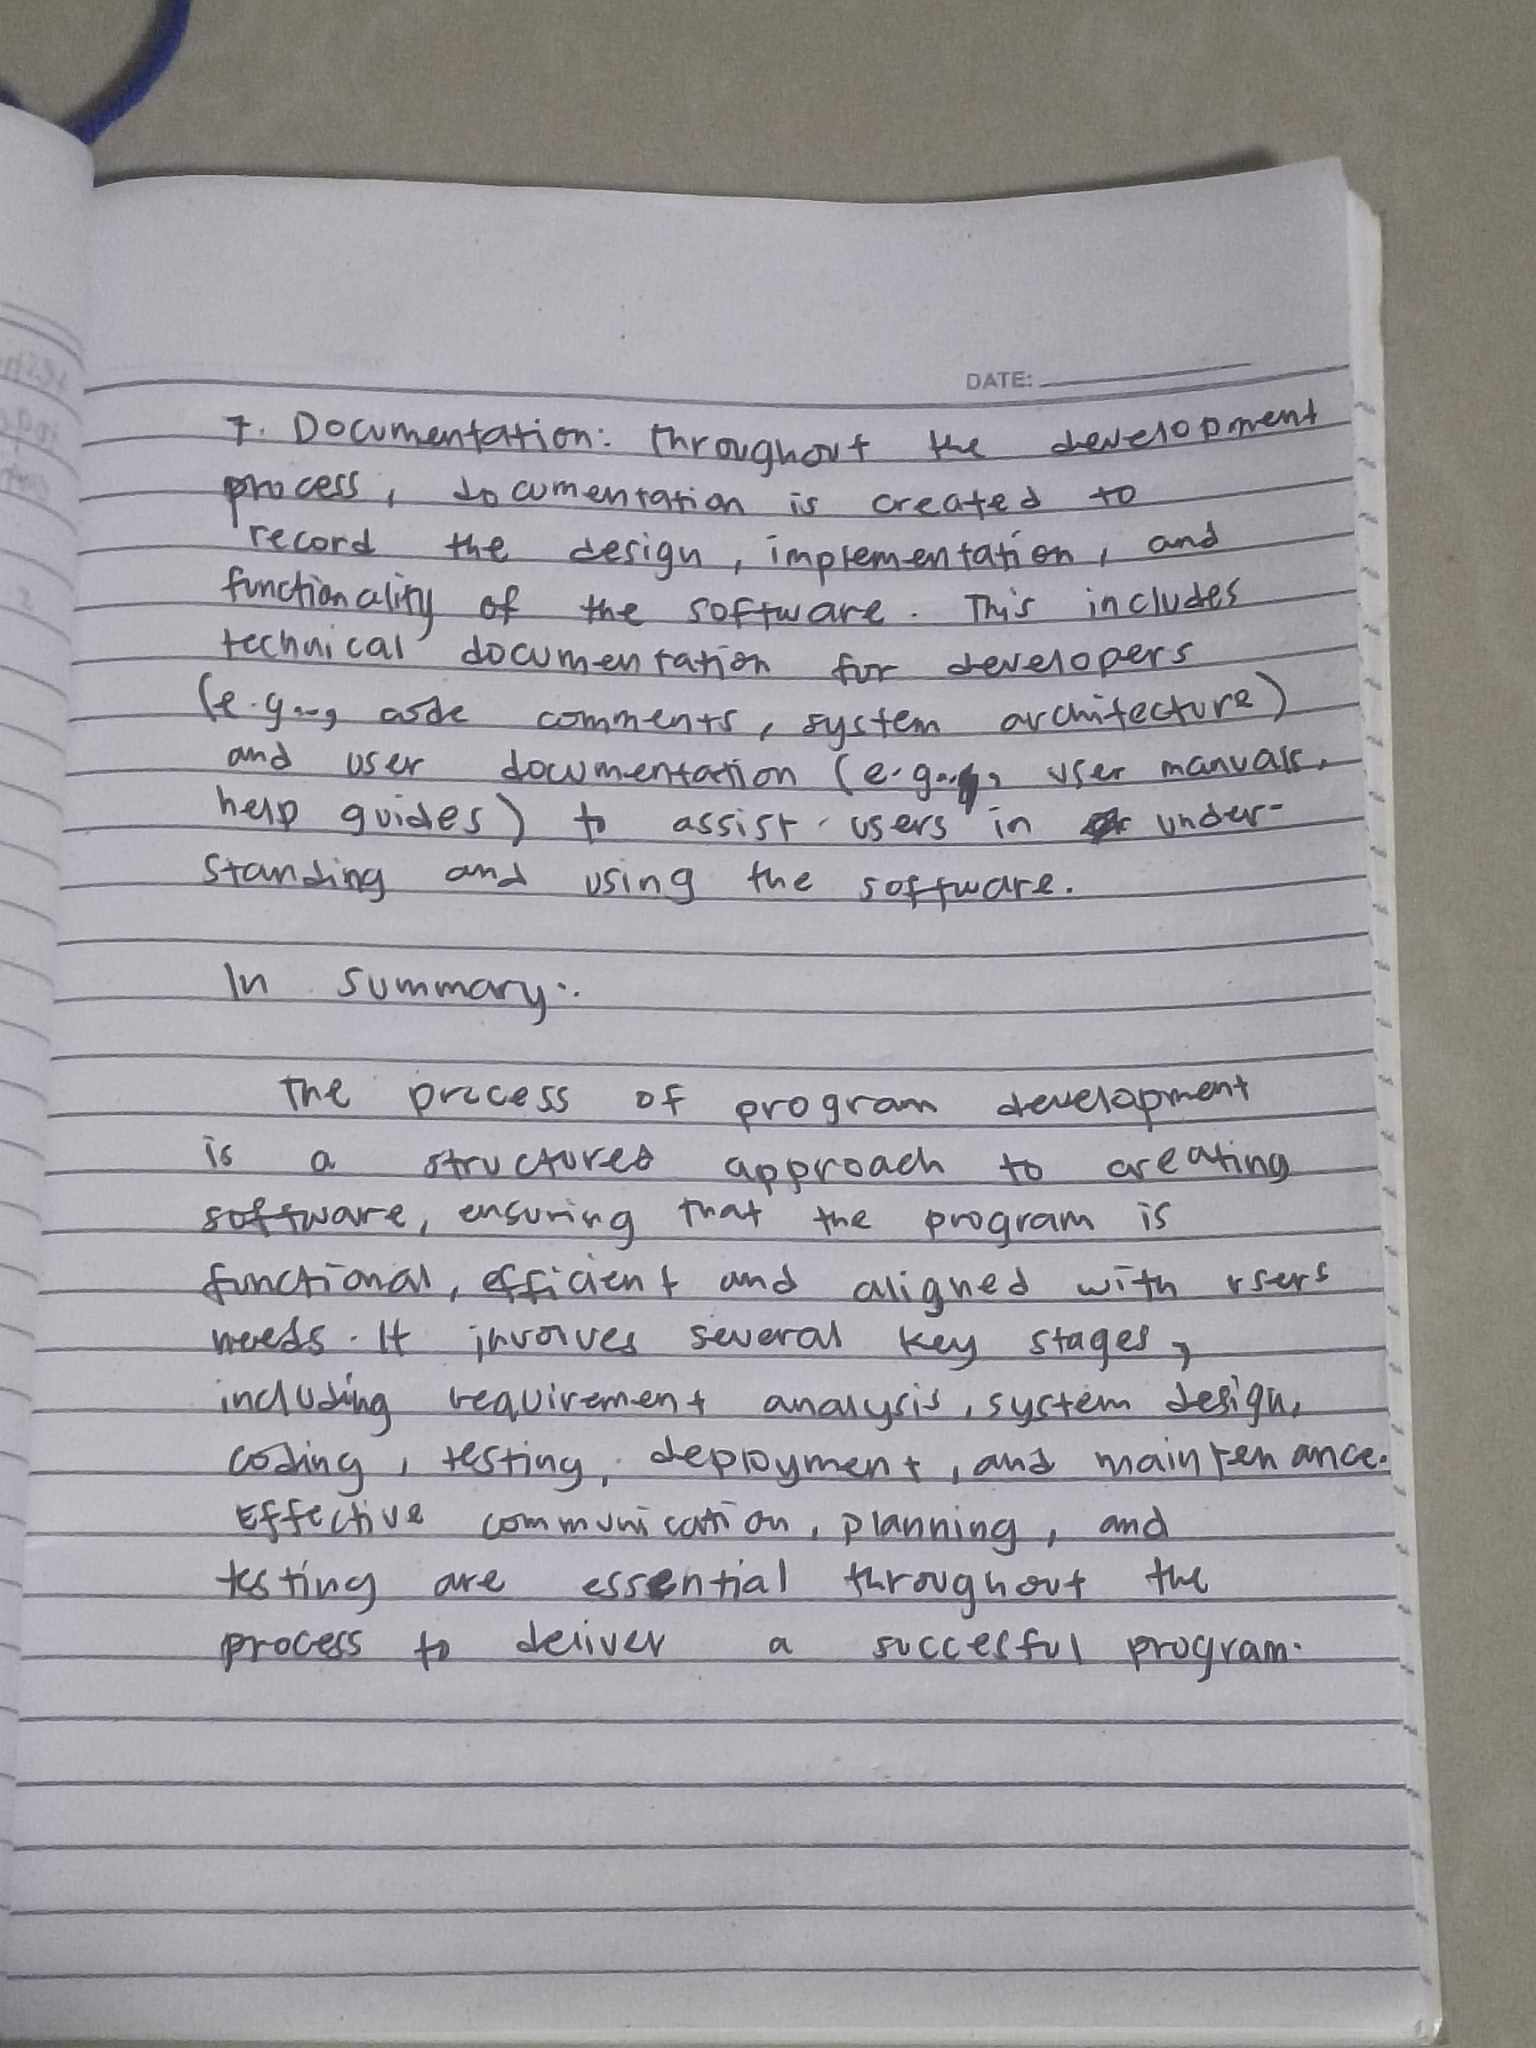 DATE:
7. Documentation: Throughout the development
process, documentation is created to
record the design, implementation, and
functionality of the software. This includes
technical documentation for developers
(e.g., code comments, system architecture)
and user documentation (e.g., user manuals,
help guides) to assist users in under-
standing and using the software.
In summary:
The process of program development
is a structured approach to creating
software, ensuring that the program is
functional, efficient and aligned with users
needs. It involves several key stages,
including requirement analysis, system design,
coding, testing, deployment, and maintenance.
Effective communication, planning, and
testing are essential throughout the
process to deliver a succesful program.